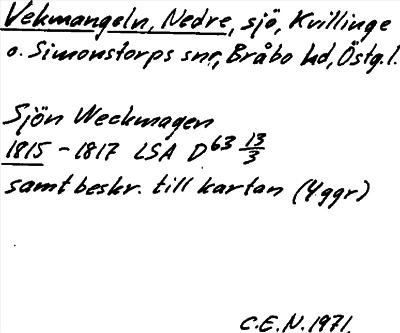 Vekmangeln, Nedre, sjö, Kvillinge
o. Simonstorps snr, Bråbo hd, Östg.l.
Sjön Weckmagen
1815 - 1817 LSA D63 13/3
samt beskr. till kartan (4 ggr)
C.E.N. 1971.